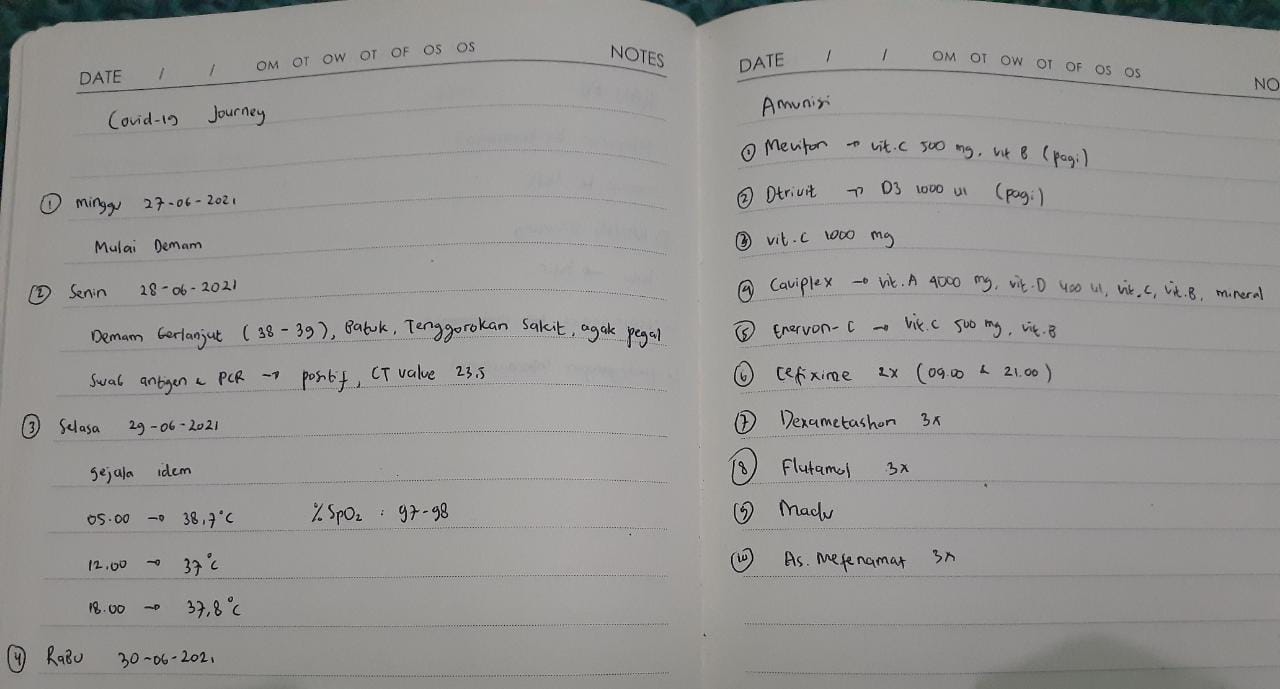 DATE / / OM OT OW OT OF OS OS NOTES
Covid-19 Journey
① Minggu 27-06-2021
Mulai Demam
② Senin 28-06-2021
Demam berlanjut (38-39), Batuk, Tenggorokan sakit, agak pegal
Swab antigen & PCR → positif, CT value 23.5
③ Selasa 29-06-2021
Gejala idem
05.00 → 38,7°C % SpO2 : 97-98
12.00 → 37°C
18.00 → 37,8°C
④ RABU 30-06-2021
DATE / / OM OT OW OT OF OS OS NO
Amunisi
① → vit.C 500 mg, vit B (pagi)
② Dtrivit → D3 1000 UI (pagi)
③ vit.C 1000 mg
④ Caviplex → vit.A 4000 mg, vit.D 400 UI, vit.C, vit.B, mineral
⑤ Enervon-C → vit.C 500 mg, vit.B
⑥ Cefixime 2x (09.00 & 21.00)
⑦ Dexametashon 3x
⑧ Flutamol 3x
⑨ Madu
⑩ As. Mefenamat 3x